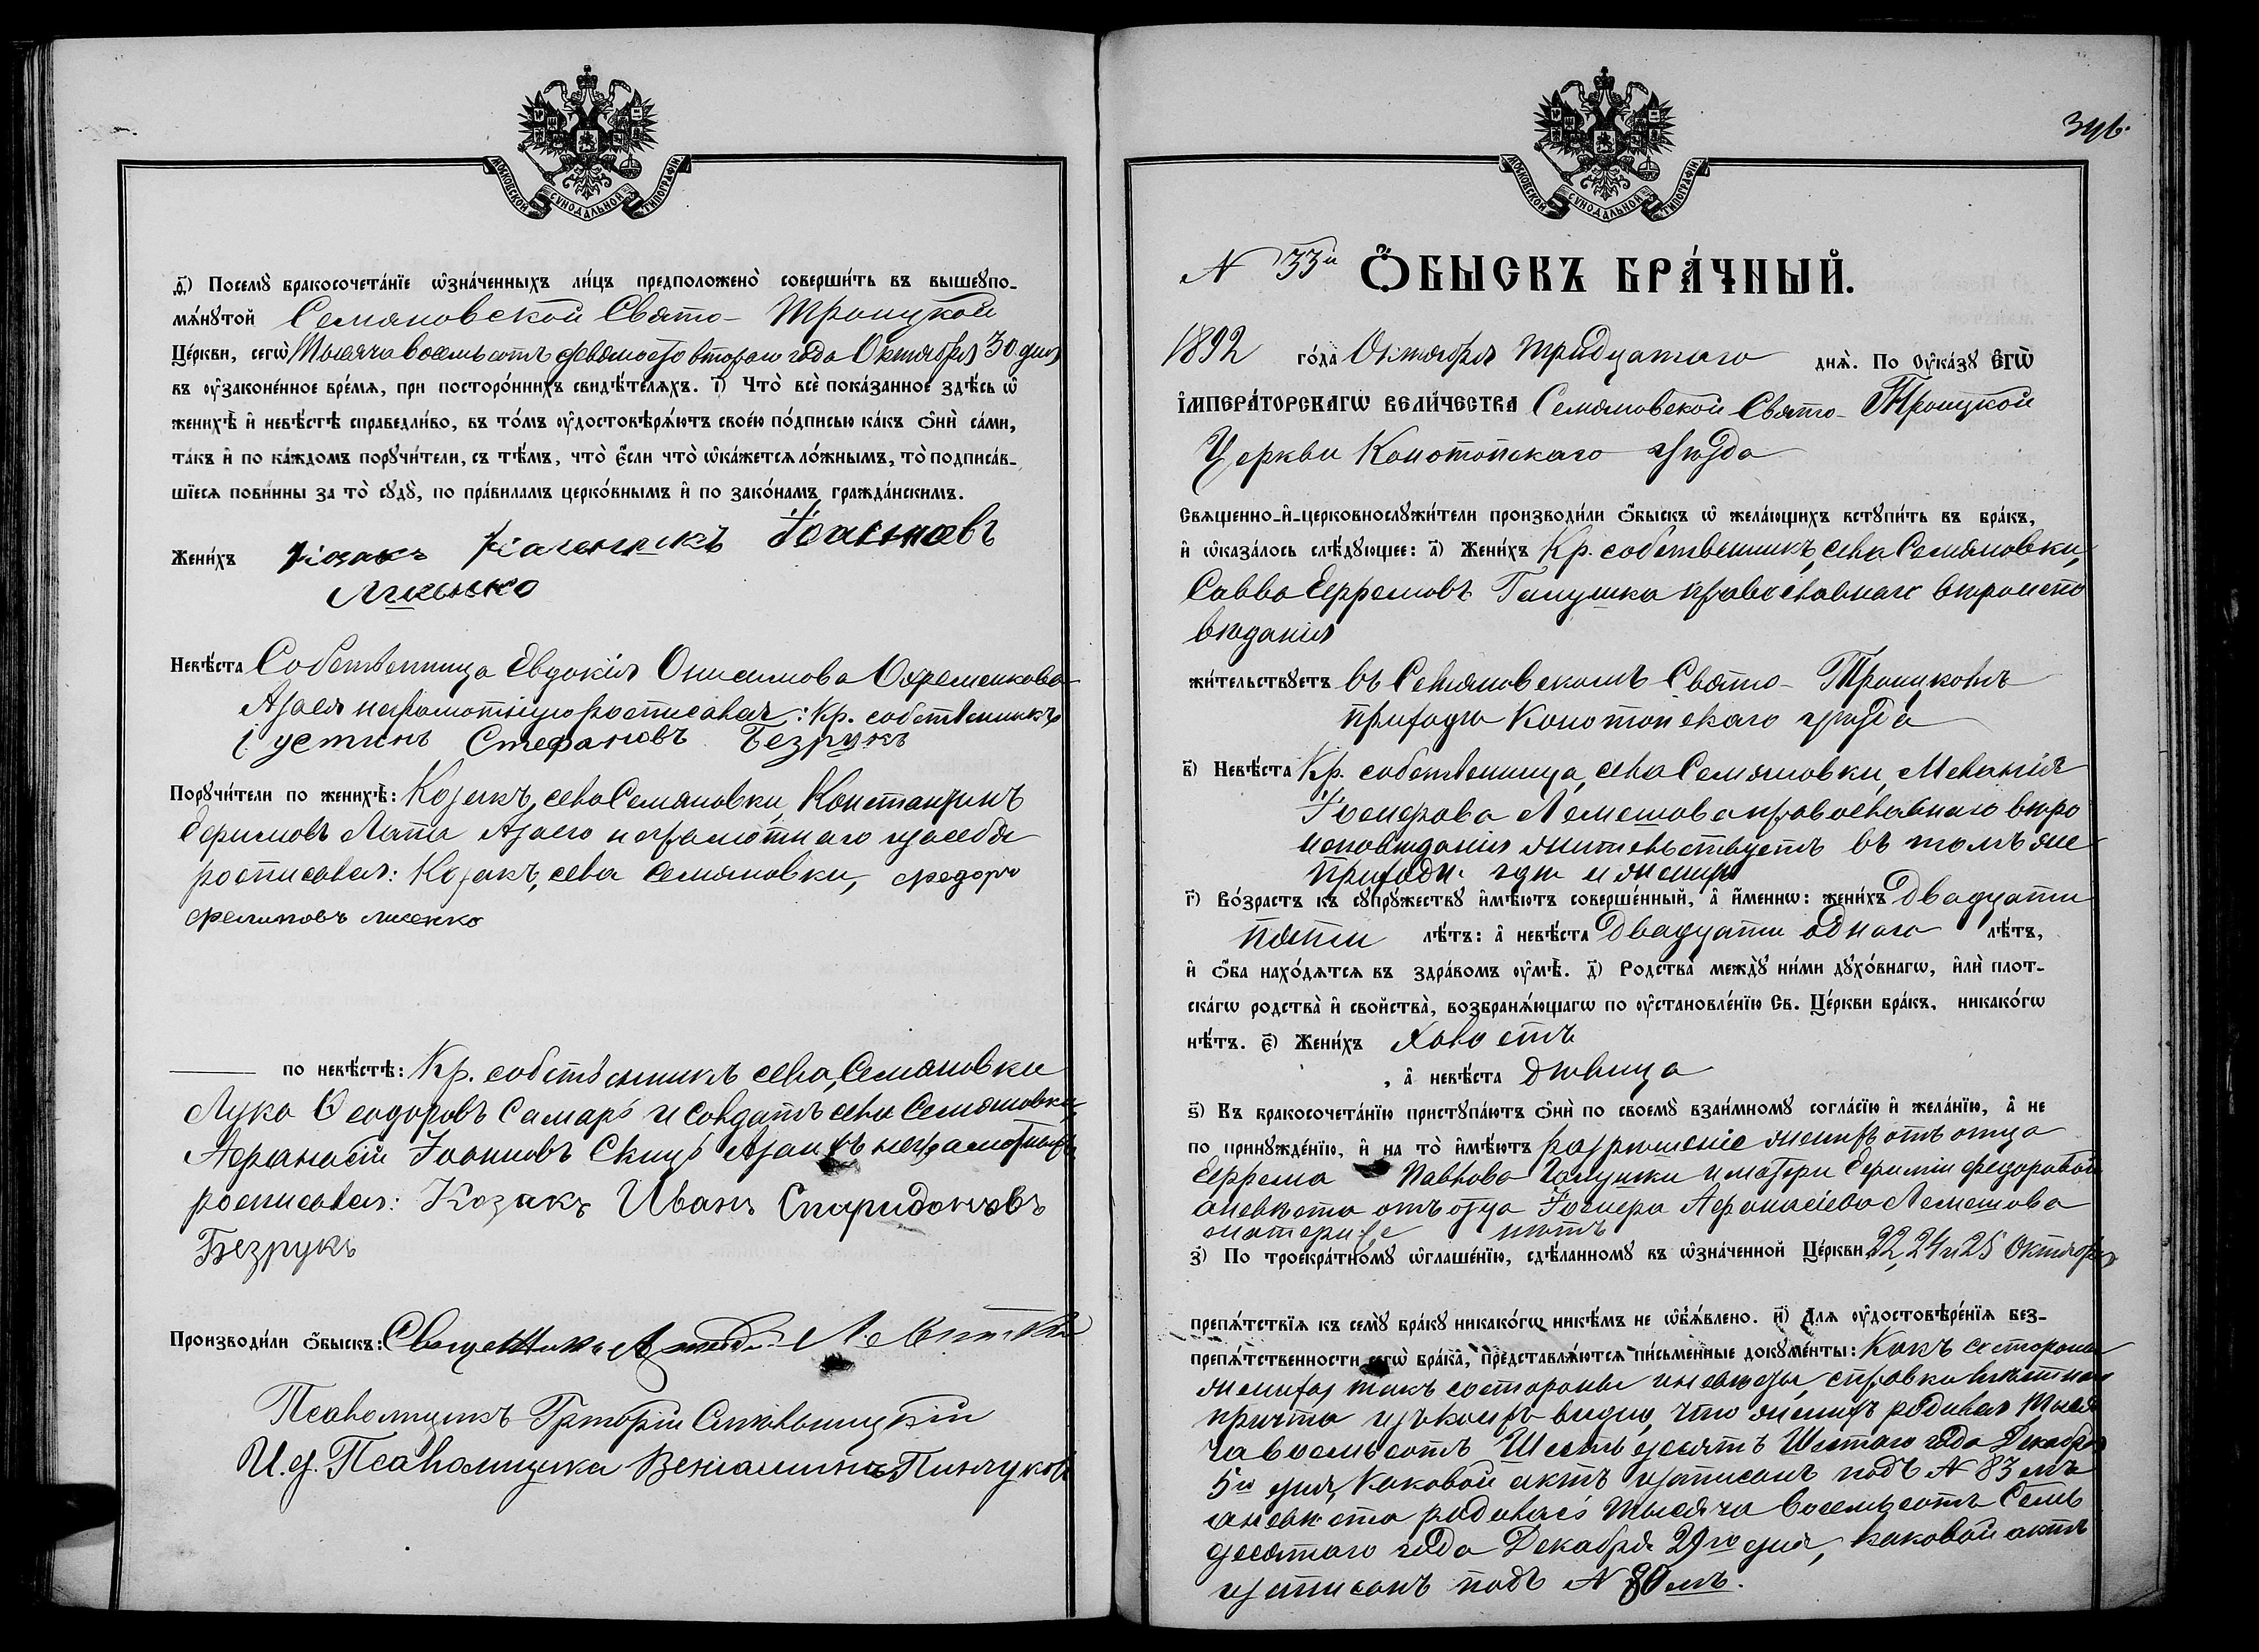 МОСКОВСКОЙ СУНОДАЛЬНОЙ ТИПОГРАФІИ
д҃) Посемꙋ̀ бракосочета́нїе ѡ҆зна́ченныхъ ли́цъ предположено̀ соверши́ть въ вышеꙋпо-
мѧ́нꙋтой Семяновской Свято- Троицкой
Це́ркви, сегѡ̀ Тысяча восемьсотъ девяносто втораго года Октября 30 дня
въ ᲂу҆законе́нное бре́мѧ, при посторо́ннихъ свидѣ́телѧхъ. і҃) Что̀ всѐ пока́занное здѣ́сь ѡ҆
женихѣ̀ и҆ невѣ́стѣ справедли́во, въ то́мъ ᲂу҆достовѣрѧ́ютъ свое́ю по́дписью ка́къ ѻ҆нѝ са́ми,
та́къ и҆ по ка́ждомъ порꙋчи́тели, съ тѣ́мъ, что̀ є҆́сли что̀ ѡ҆ка́жетсѧ ло́жнымъ, то̀ подписа́в-
шїесѧ пови́нны за то̀ сꙋдꙋ̀, по пра́виламъ церко́внымъ и҆ по зако́намъ гражда́нскимъ.
Жени́хъ козакъ Іоанновъ
Лисенко
Невѣ́ста Собственница Евдокія Онисимова Охременкова
А за ея неграмотную росписался: Кр. собственникъ
Іустинъ Стефановъ Безрукъ
Порꙋчи́тели по женихѣ̀: Козакъ, села Семяновки, Константинъ
Ефимовъ Лата А за его неграмотнаго и за себя
росписался: Козакъ, села Семяновки, Федоръ
Филиповъ лисенко
по невѣ́стѣ: Кр. собственникъ села, Семяновки
Лука Ѳеодоровъ Самарь и солдатъ села Семяновки,
Афанасій Іоанновъ Скица А за ихъ неграмотныхъ
росписался: Козакъ Иванъ Спиридоновъ
Безрукъ
Производи́ли ѻ҆́быскъ: Священникъ Левитскій
Псаломщикъ Григорій
И. д. Псаломщика Веніаминъ Пинчуковъ
МОСКОВСКОЙ СУНОДАЛЬНОЙ ТИПОГРАФІИ
346.
N 33й Ѻ҆БЫСКЪ БРА́ЧНЫЙ.
1892 го́да Октября тридцатаго днѧ̀. По Оу҆ка́зꙋ Є҆гѡ̀
І҆МПЕРА́ТОРСКАГѠ ВЕЛИ́ЧЕСТВА Семяновской Свято- Троицкой
Церкви Конотопскаго уѣзда
Свѧщенно-и҆-церковнослꙋжи́тели производи́ли ѻ҆́быскъ ѡ҆ жела́ющихъ встꙋпи́ть въ бра́къ,
и҆ ѡ҆каза́лось слѣ́дꙋющее: а҃) Жени́хъ Кр. собственникъ, села Семяновки,
Савва Ефремовъ Галушка православнаго вѣроиспо
вѣданія
жи́тельствꙋетъ въ Семяновскомъ Свято- Троицкомъ
приходѣ Конотопскаго уѣзда
в҃) Невѣ́ста Кр. собственница, села Семяновки, Меланія
Лемешова православнаго вѣро
исповѣданія жительствуетъ въ томъ же
приходѣ гдѣ и женихъ
г҃) Во́зрастъ къ сꙋпрꙋ́жествꙋ и҆мѣ́ютъ соверше́нный, а҆ и҆́меннѡ: жени́хъ двадцати
пяти лѣ́тъ: а҆ невѣ́ста двадцати одного лѣ́тъ,
и҆ ѻ҆́ба нахо́дѧтсѧ въ здра́вомъ ᲂу҆мѣ̀. д҃) Родства̀ междꙋ̀ ни́ми дꙋхо́внагѡ, и҆лѝ плот-
ска́гѡ родства̀ и҆ свойства̀, возбранѧ́ющагѡ по ᲂу҆становле́нїю Св. Це́ркви бра́къ, никако́гѡ
нѣ́тъ. є҃) Жени́хъ холостъ
, а҆ невѣ́ста дѣвица
ѕ҃) Въ бракосочета́нїю пристꙋпа́ютъ ѻ҆нѝ по своемꙋ̀ взаи́мномꙋ согла́сїю и҆ жела́нїю, а҆ не
по принꙋжде́нїю, и҆ на то̀ и҆мѣ́ютъ разрѣшеніе женихъ отъ отца
Ефрема Павлова Галушки и матери Евфиміи Федоровой
а невѣста отъ отца Афанасіева Лемешова
матери же нетъ
з҃) По троекра́тномꙋ ѡ҆глаше́нїю, сдѣ́ланномꙋ въ ѡ҆зна́ченной Це́ркви 22, 24 и 25 Октября
препѧ́тствїѧ къ семꙋ̀ бра́кꙋ никако́гѡ никѣ́мъ не ѡ҆б̾ѧ́влено. и҃) Длѧ ᲂу҆достовѣре́нїѧ без-
препѧ́тственности сегѡ̀ бра́ка, представлѧ́ютсѧ пи́сьменные докꙋме́нты: Какъ со стороны
жениха, такъ со стороны и невѣсты, справка мѣстнаго
причта изъ коихъ видно, что женихъ родился тыся
ча восемьсотъ шестьдесятъ шестаго года Декабря
5го дня, каковой актъ записанъ подъ N 83 мъ
а невѣста родилась тысяча восемьсотъ семь
десятаго года Декабря 29го дня, каковой актъ
записанъ подъ N 80мъ.